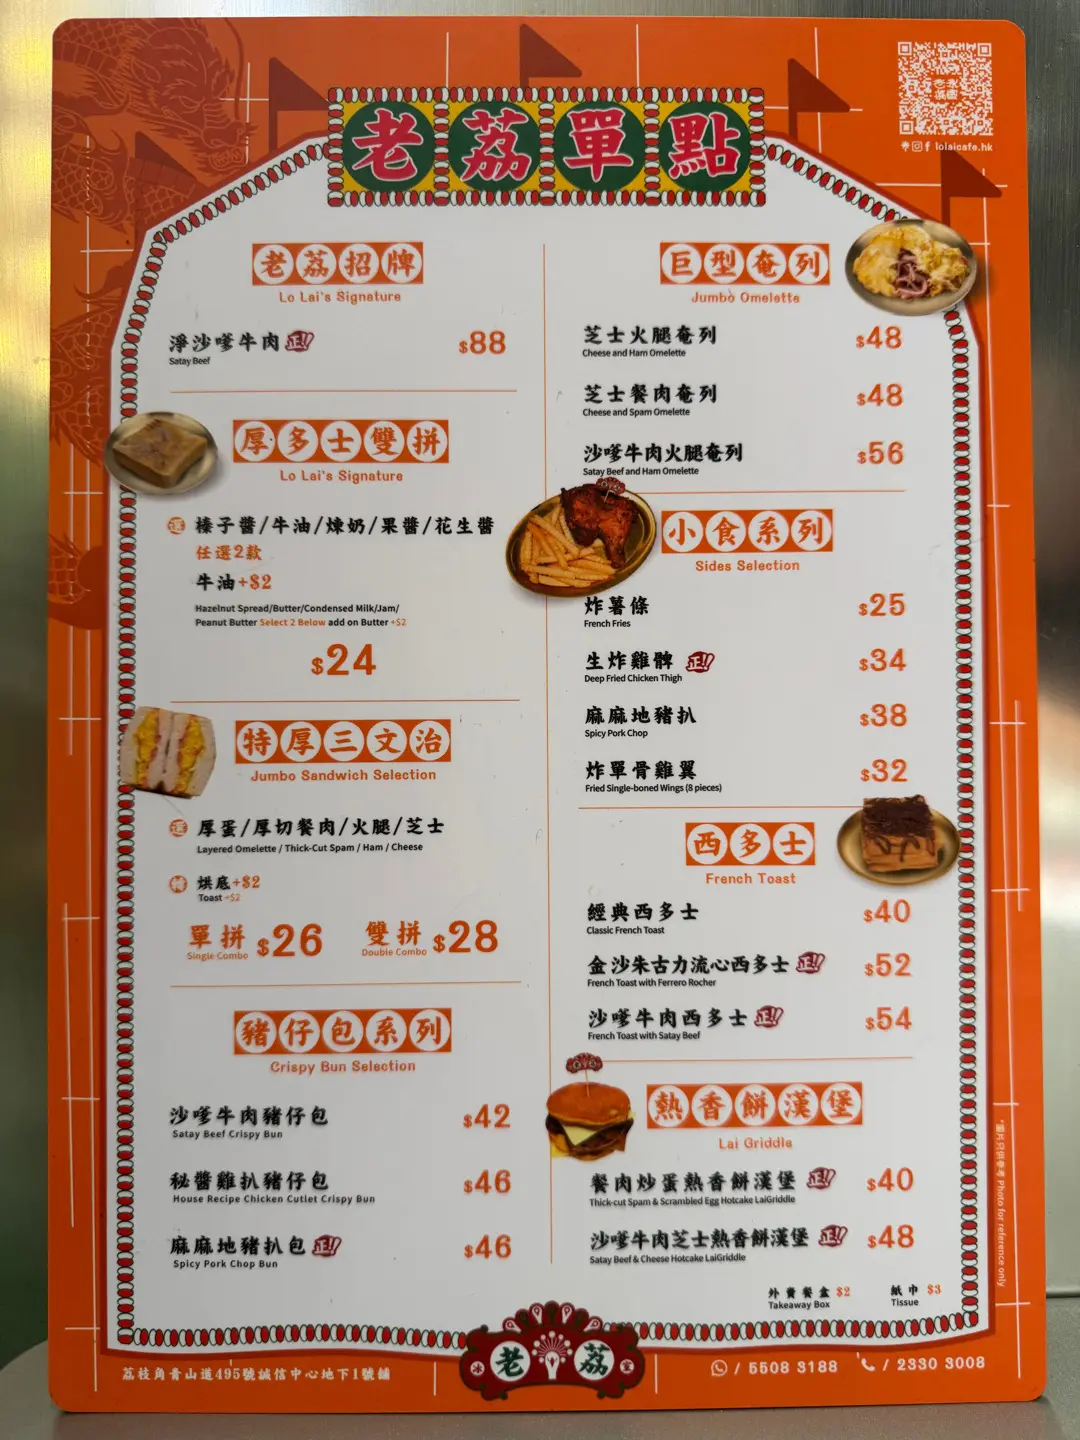 老荔單點
lolaicafe.hk
老荔招牌
Lo Lai's Signature
淨沙嗲牛肉 正!!
$88
Satay Beef
厚多士雙拼
Lo Lai's Signature
選 榛子醬/牛油/煉奶/果醬/花生醬
任選2款
牛油+$2
Hazelnut Spread/Butter/Condensed Milk/Jam/
Peanut Butter Select 2 Below add on Butter +$2
$24
特厚三文治
Jumbo Sandwich Selection
選 厚蛋/厚切餐肉/火腿/芝士
Layered Omelette / Thick-Cut Spam / Ham / Cheese
烘底+$2
Toast +$2
單拼 $26 雙拼 $28
Single Combo Double Combo
豬仔包系列
Crispy Bun Selection
沙嗲牛肉豬仔包 $42
Satay Beef Crispy Bun
秘醬雞扒豬仔包 $46
House Recipe Chicken Cutlet Crispy Bun
麻麻地豬扒包 正!! $46
Spicy Pork Chop Bun
巨型奄列
Jumbo Omelette
芝士火腿奄列 $48
Cheese and Ham Omelette
芝士餐肉奄列 $48
Cheese and Spam Omelette
沙嗲牛肉火腿奄列 $56
Satay Beef and Ham Omelette
小食系列
Sides Selection
炸薯條 $25
French Fries
生炸雞髀 正!! $34
Deep Fried Chicken Thigh
麻麻地豬扒 $38
Spicy Pork Chop
炸單骨雞翼 $32
Fried Single-boned Wings (8 pieces)
西多士
French Toast
經典西多士 $40
Classic French Toast
金沙朱古力流心西多士 正!! $52
French Toast with Ferrero Rocher
沙嗲牛肉西多士 正!! $54
French Toast with Satay Beef
熱香餅漢堡
Lai Griddle
餐肉炒蛋熱香餅漢堡 正!! $40
Thick-cut Spam & Scrambled Egg Hotcake LaiGriddle
沙嗲牛肉芝士熱香餅漢堡 正!! $48
Satay Beef & Cheese Hotcake LaiGriddle
外賣餐盒 $2 紙巾 $3
Takeaway Box Tissue
*圖片只供參考 Photo for reference only
荔枝角青山道495號誠信中心地下1號舖
冰 老荔 室
/ 5508 3188 / 2330 3008